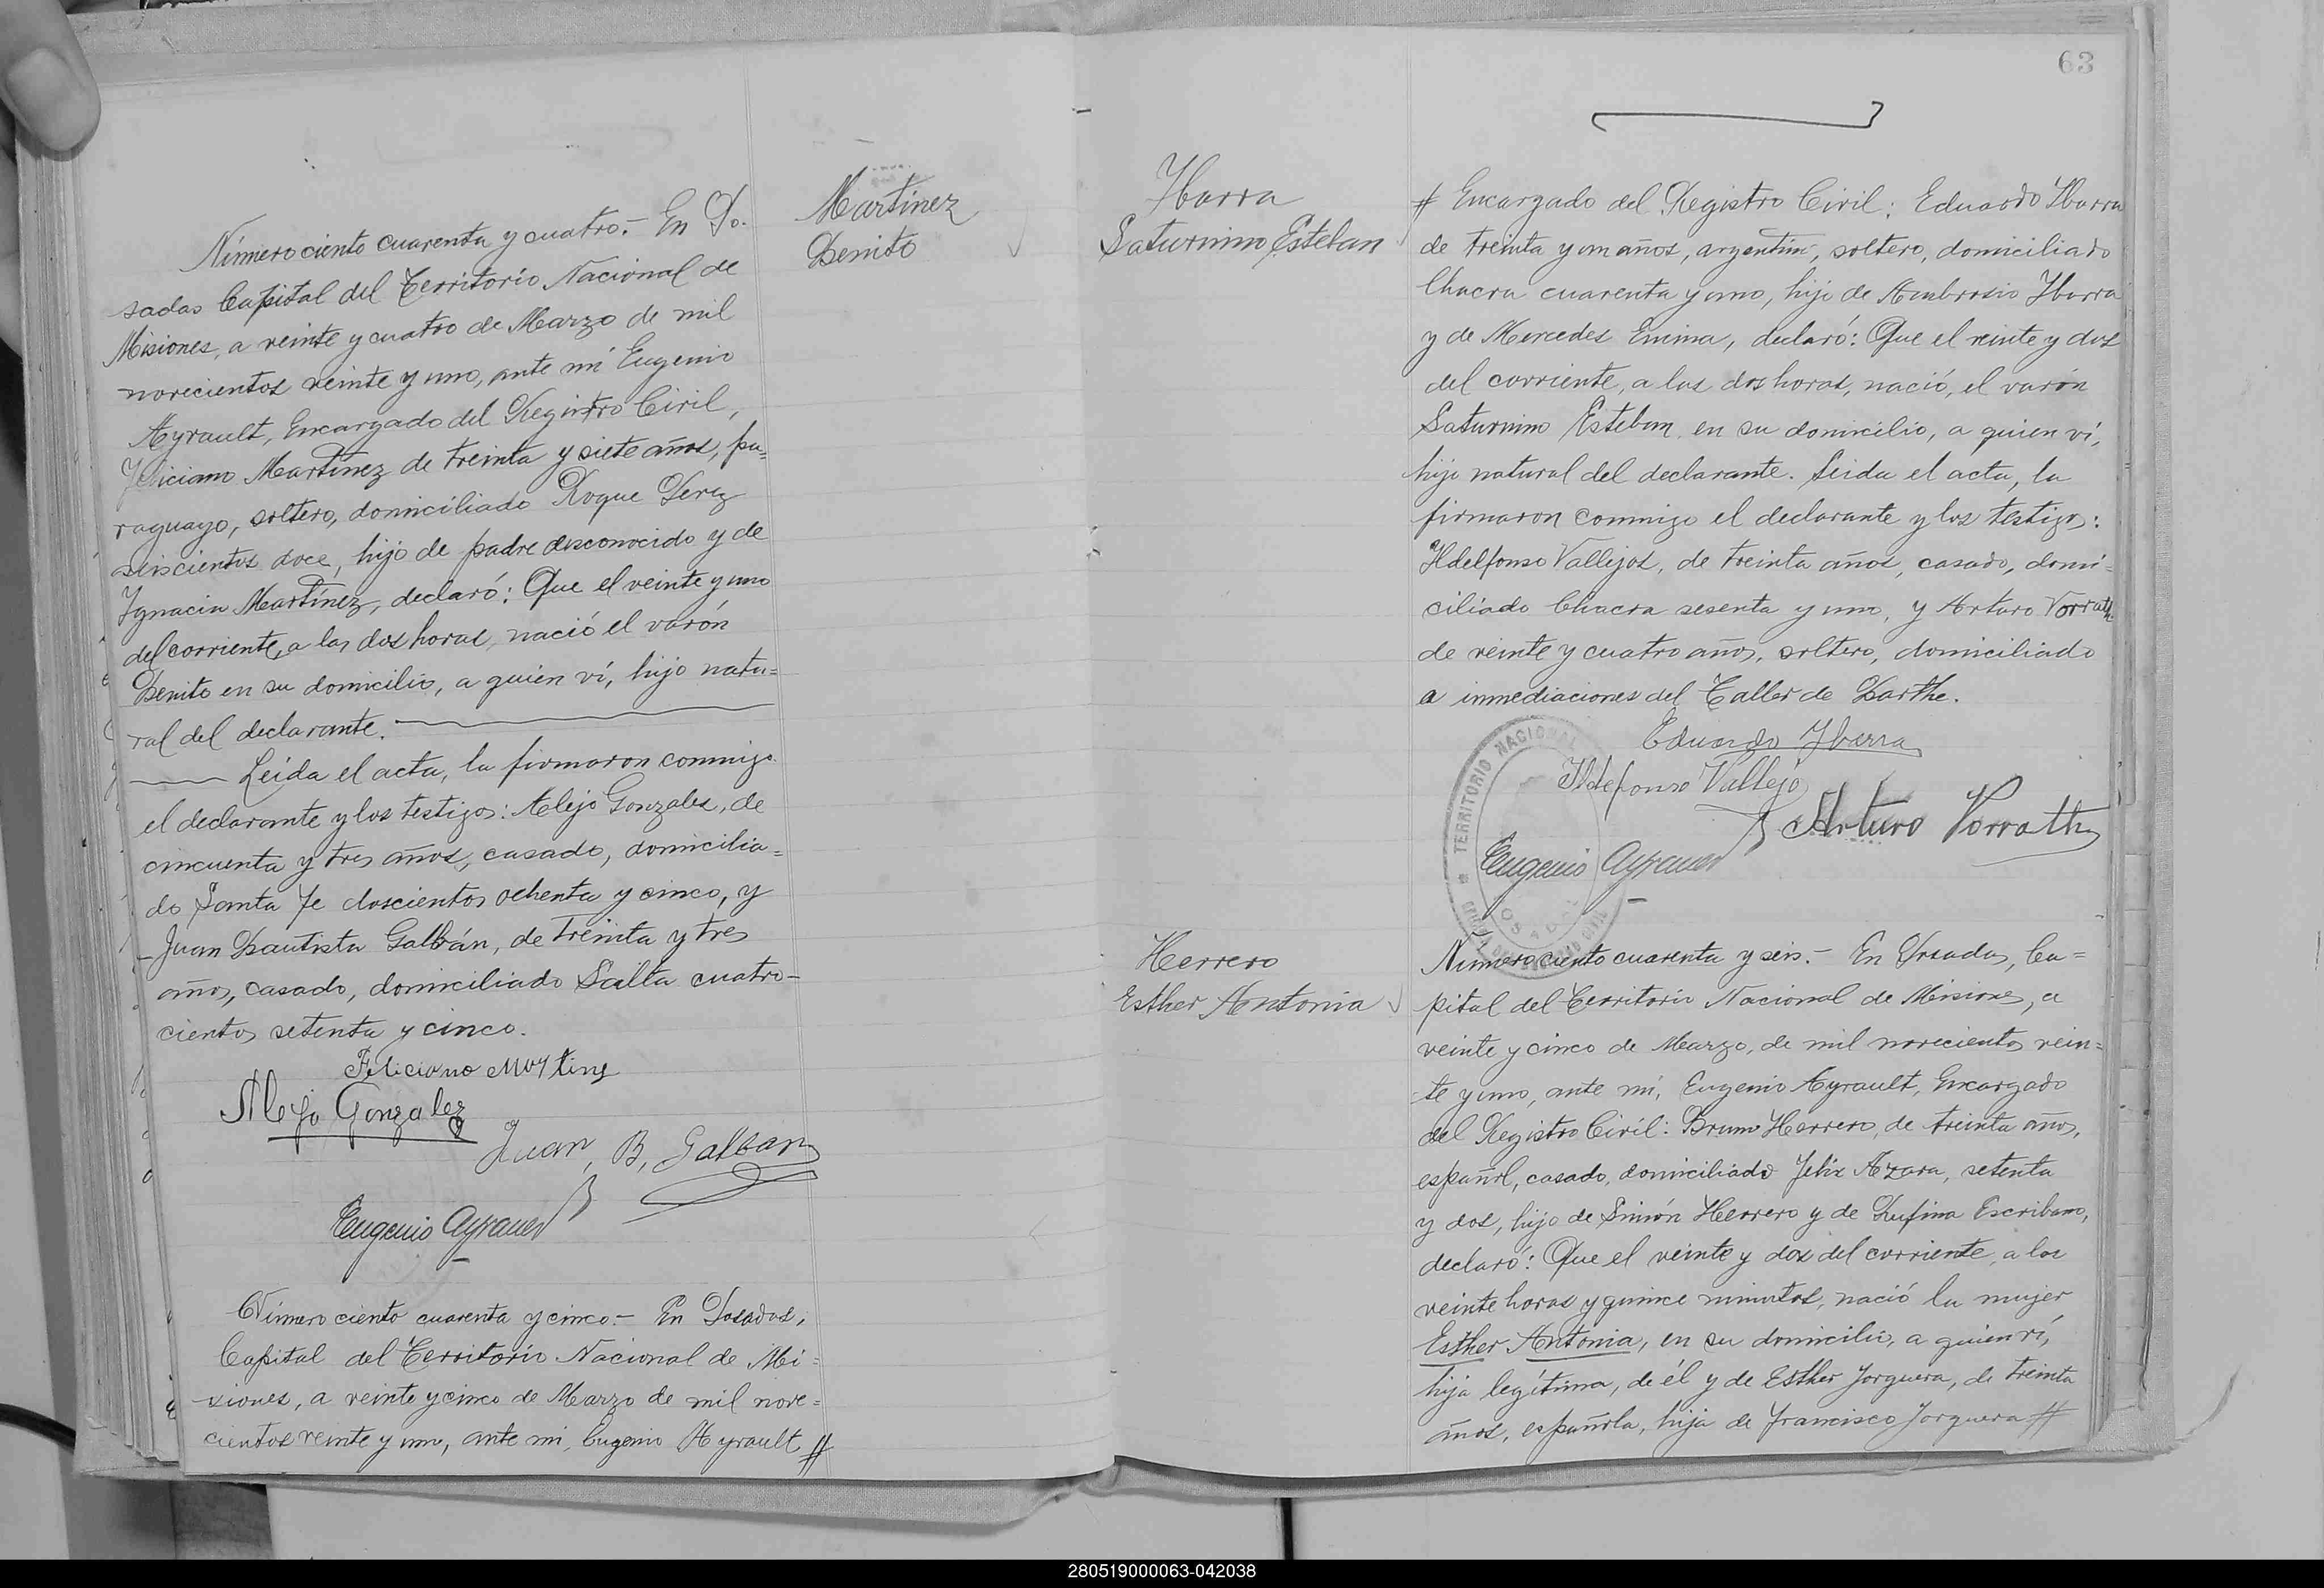 Martinez
Benito
Número ciento cuarenta y cuatro.- En Po-
sadas Capital del Territorio Nacional de
Misiones, a veinte y cuatro de Marzo de mil
novecientos veinte y uno, ante mi Eugenio
Ayrault, Encargado del Registro Civil,
Feliciano Martínez de treinta y siete años, pa=
raguayo, soltero, domiciliado Roque Perez
seiscientos doce, hijo de padre desconocido y de
Ignacia Martínez, declaró: Que el veinte y uno
del corriente, a las dos horas, nació el varón
Benito en su domicilio, a quien ví, hijo natu=
ral del declarante.
Leida el acta, la firmaron conmigo
el declarante y los testigos: Alejo Gonzales, de
cincuenta y tres años, casado, domicilia=
do Santa Fe doscientos ochenta y cinco, y
Juan Bautista Galbán, de treinta y tres
años, casado, domiciliado Salta cuatro-
cientos setenta y cinco.
Feliciano Martinz
Alejo Gonzalez
Juan, B, Galban
Eugenio Ayrault
Número ciento cuarenta y cinco.- En Posadas,
Capital del Territorio Nacional de Mi=
siones, a veinte y cinco de Marzo de mil nove=
cientos veinte y uno, ante mi, Eugenio Ayrault #
63
Ibarra
Saturnino Esteban
# Encargado del Registro Civil: Eduardo Ibarra
de treinta y un años, argentino, soltero, domiciliado
Chacra cuarenta y uno, hijo de Ambrosio Ibarra
y de Mercedes Encina, declaró: Que el veinte y dos
del corriente, a las dos horas, nació, el varón
Saturnino Esteban en su domicilio, a quien ví,
hijo natural del declarante. Leida el acta, la
firmaron conmigo el declarante y los testigos:
Ildelfonso Vallejos, de treinta años, casado, domi=
ciliado Chacra sesenta y uno, y Arturo Vorrath
de veinte y cuatro años, soltero, domiciliado
a inmediaciones del Taller de Barthe.
Eduardo Ybarra
Ildefonso Vallejo
Arturo Vorrath
Eugenio Ayrault
TERRITORIO NACIONAL
Herrero
Esther Antonia
Número ciento cuarenta y seis.- En Posadas, Ca=
pital del Territorio Nacional de Misiones, a
veinte y cinco de Marzo, de mil novecientos vein=
te y uno, ante mí, Eugenio Ayrault, Encargado
del Registro Civil: Bruno Herrero, de treinta años,
español, casado, domiciliado Felix Azara, setenta
y dos, hijo de Simón Herrero y de Rufina Escribano,
declaró: Que el veinte y dos del corriente, a las
veinte horas y quince minutos, nació la mujer
Esther Antonia, en su domicilio, a quien ví,
hija legítima, de él y de Esther Jorquera, de treinta
años, española, hija de Francisco Jorquera #
280519000063-042038